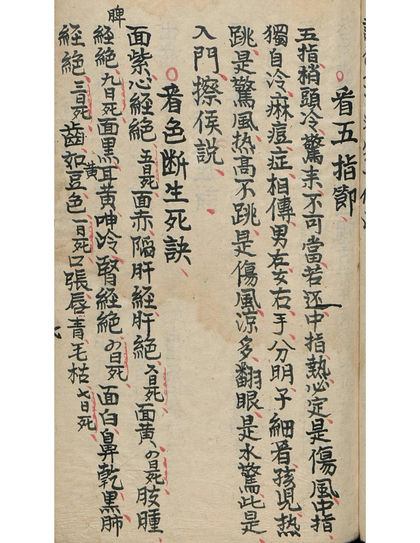 ○看五指節
五指梢頭冷驚来不可當若还中指熱必定是傷風中指
獨自冷麻痘症相傳男左女右手分明子細看孩児热
跳是驚風热高不跳是傷風凉多翻眼是水驚此是
入門擦侯說
○看色断生死訣
面紫心經絶五日死面赤陷肝經肝絶日死面黄日死肢腫
脾經絶九日死面黑耳黄呻冷腎經絶日死面白鼻乾黑肺
經絶三日死齒如黄豆色一日死口張唇青毛枯七日死